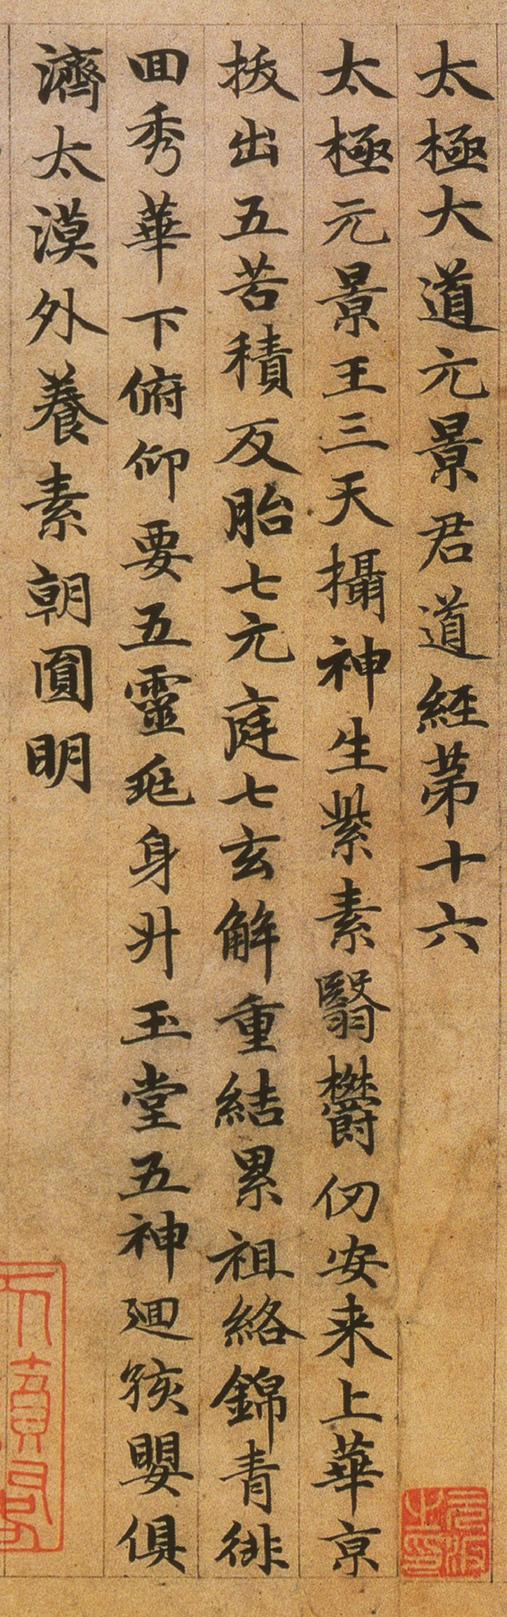 太極大道元景君道經苐十六
太極元景王三天攝神生紫素翳欝仞安来上華京
拔出五苦積反胎七元庭七玄解重結累祖絡錦青徘
回秀華下俯仰要五靈珽身升玉堂五神廻孩嬰俱
濟太漠外養素朝圎明